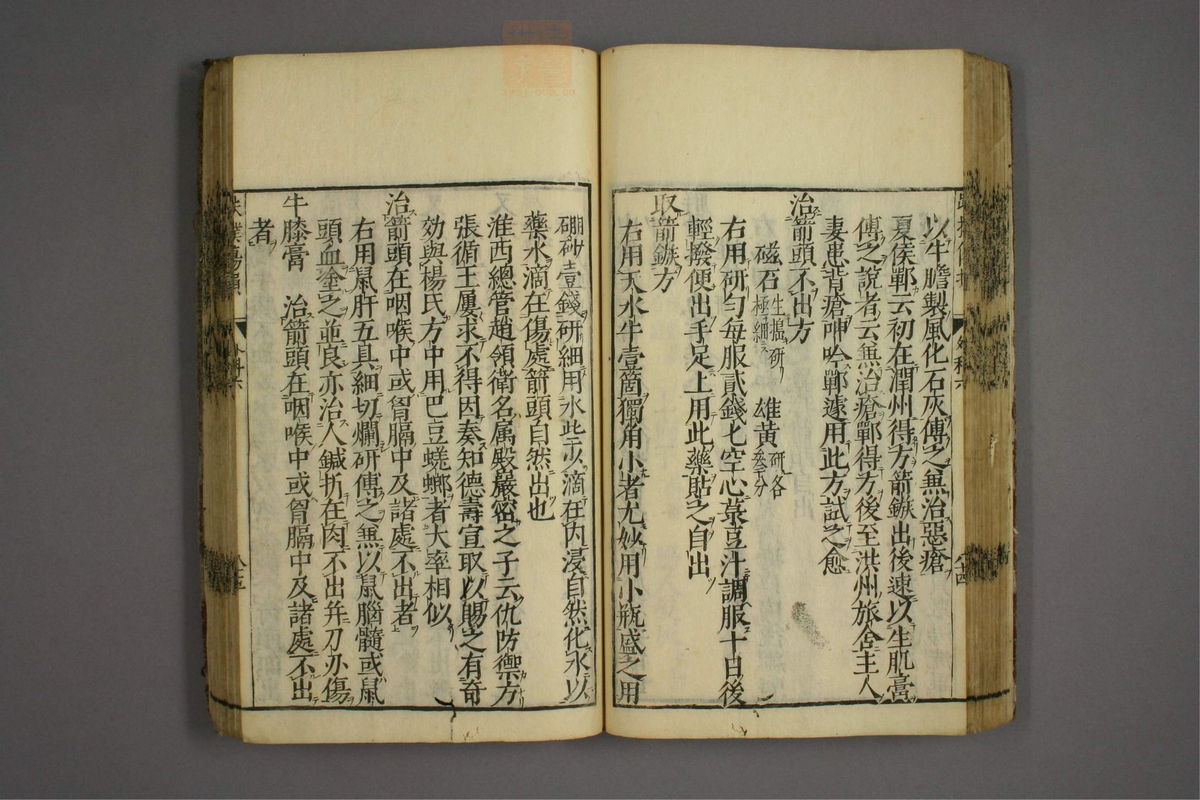 以牛膽製風化石灰傅之無治惡瘡
夏侯鄲云初在潤州得方箭鏃出後速以生肌膏
傅之說者云無治瘡鄲得方後至洪州旅舍主人
妻患背瘡呻吟鄲遽用此方試之愈
治箭頭不出方
磁石生搗研極細 雄黃研各叄分
右用研勻每服貳錢匕空心菉豆汁調服十日後
輕撥便出手足上用此藥貼之自出
取箭鏃方
右用天水牛壹箇獨角小者尤妙用小瓶盛之用
硼砂壹錢研細用水些少滴在內浸自然化水以
藥水滴在傷處箭頭自然出也
淮西總管趙領衛名属殿嚴密之子云仇防禦方
張循王屢求不得因奏知德壽宣取以賜之有奇
效與楊氏方中用巴豆蜣螂者大率相似
治箭頭在咽喉中或胷膈中及諸處不出者
右用鼠肝五具細切爛研傅之無以鼠腦髓或鼠
頭血塗之並良亦治人鍼折在肉不出并刀亦傷
牛膝膏 治箭頭在咽喉中或胷膈中及諸處不出
者